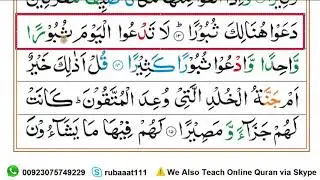 دَعَوْا هُنَالِكَ ثُبُوْرًا ؕ۝۱۳ لَا تَدْعُوا الْيَوْمَ ثُبُوْرًا
وَّاحِدًا وَّادْعُوْا ثُبُوْرًا كَثِيْرًا ۝۱۴ قُلْ اَذٰلِكَ خَيْرٌ
اَمْ جَنَّةُ الْخُلْدِ الَّتِيْ وُعِدَ الْمُتَّقُوْنَ ؕ كَانَتْ
لَهُمْ جَزَآءً وَّ مَصِيْرًا ۝۱۵ لَهُمْ فِيْهَا مَا يَشَآءُوْنَ
00923075749229 rubaaat111 We Also Teach Online Quran via Skype